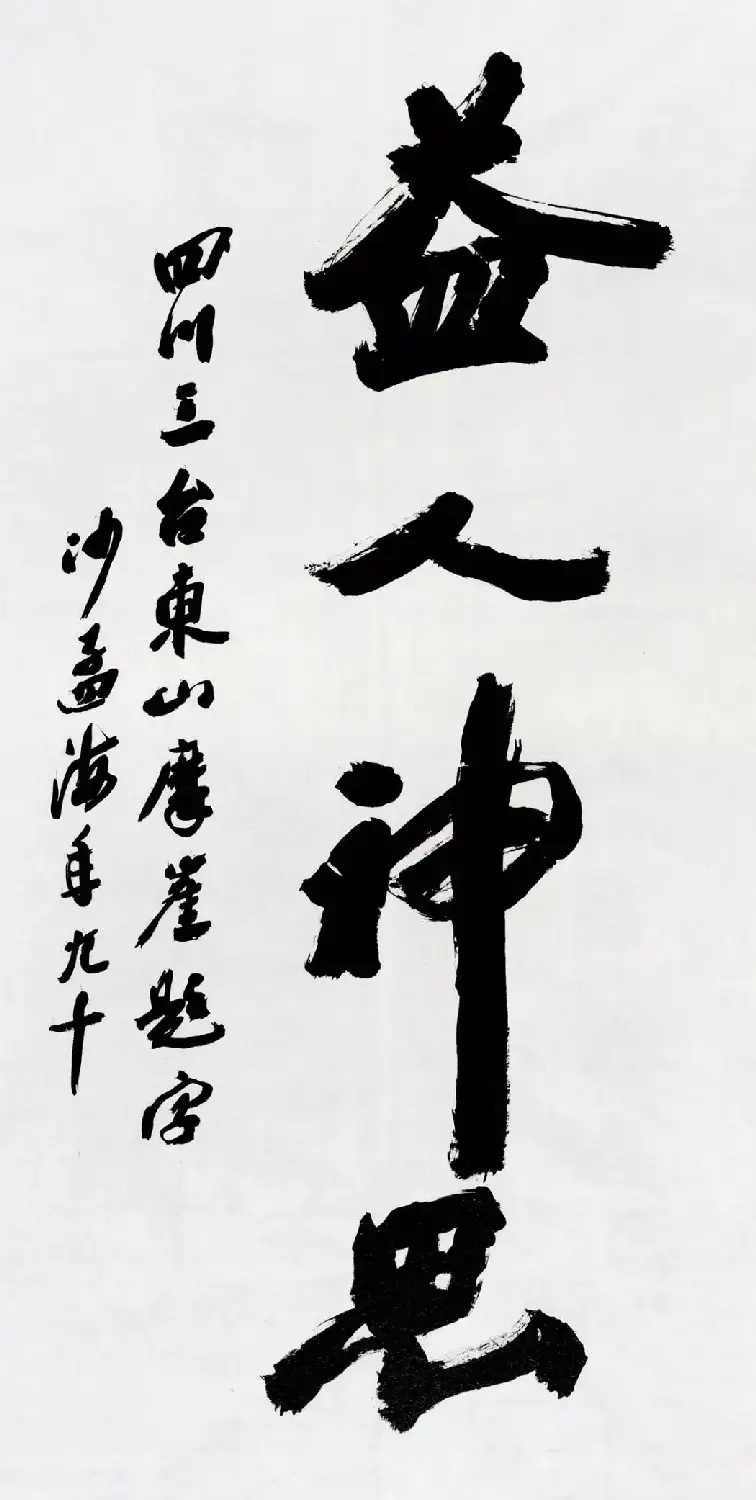 益人神思
四川三台東山摩崖題字
沙孟海年九十